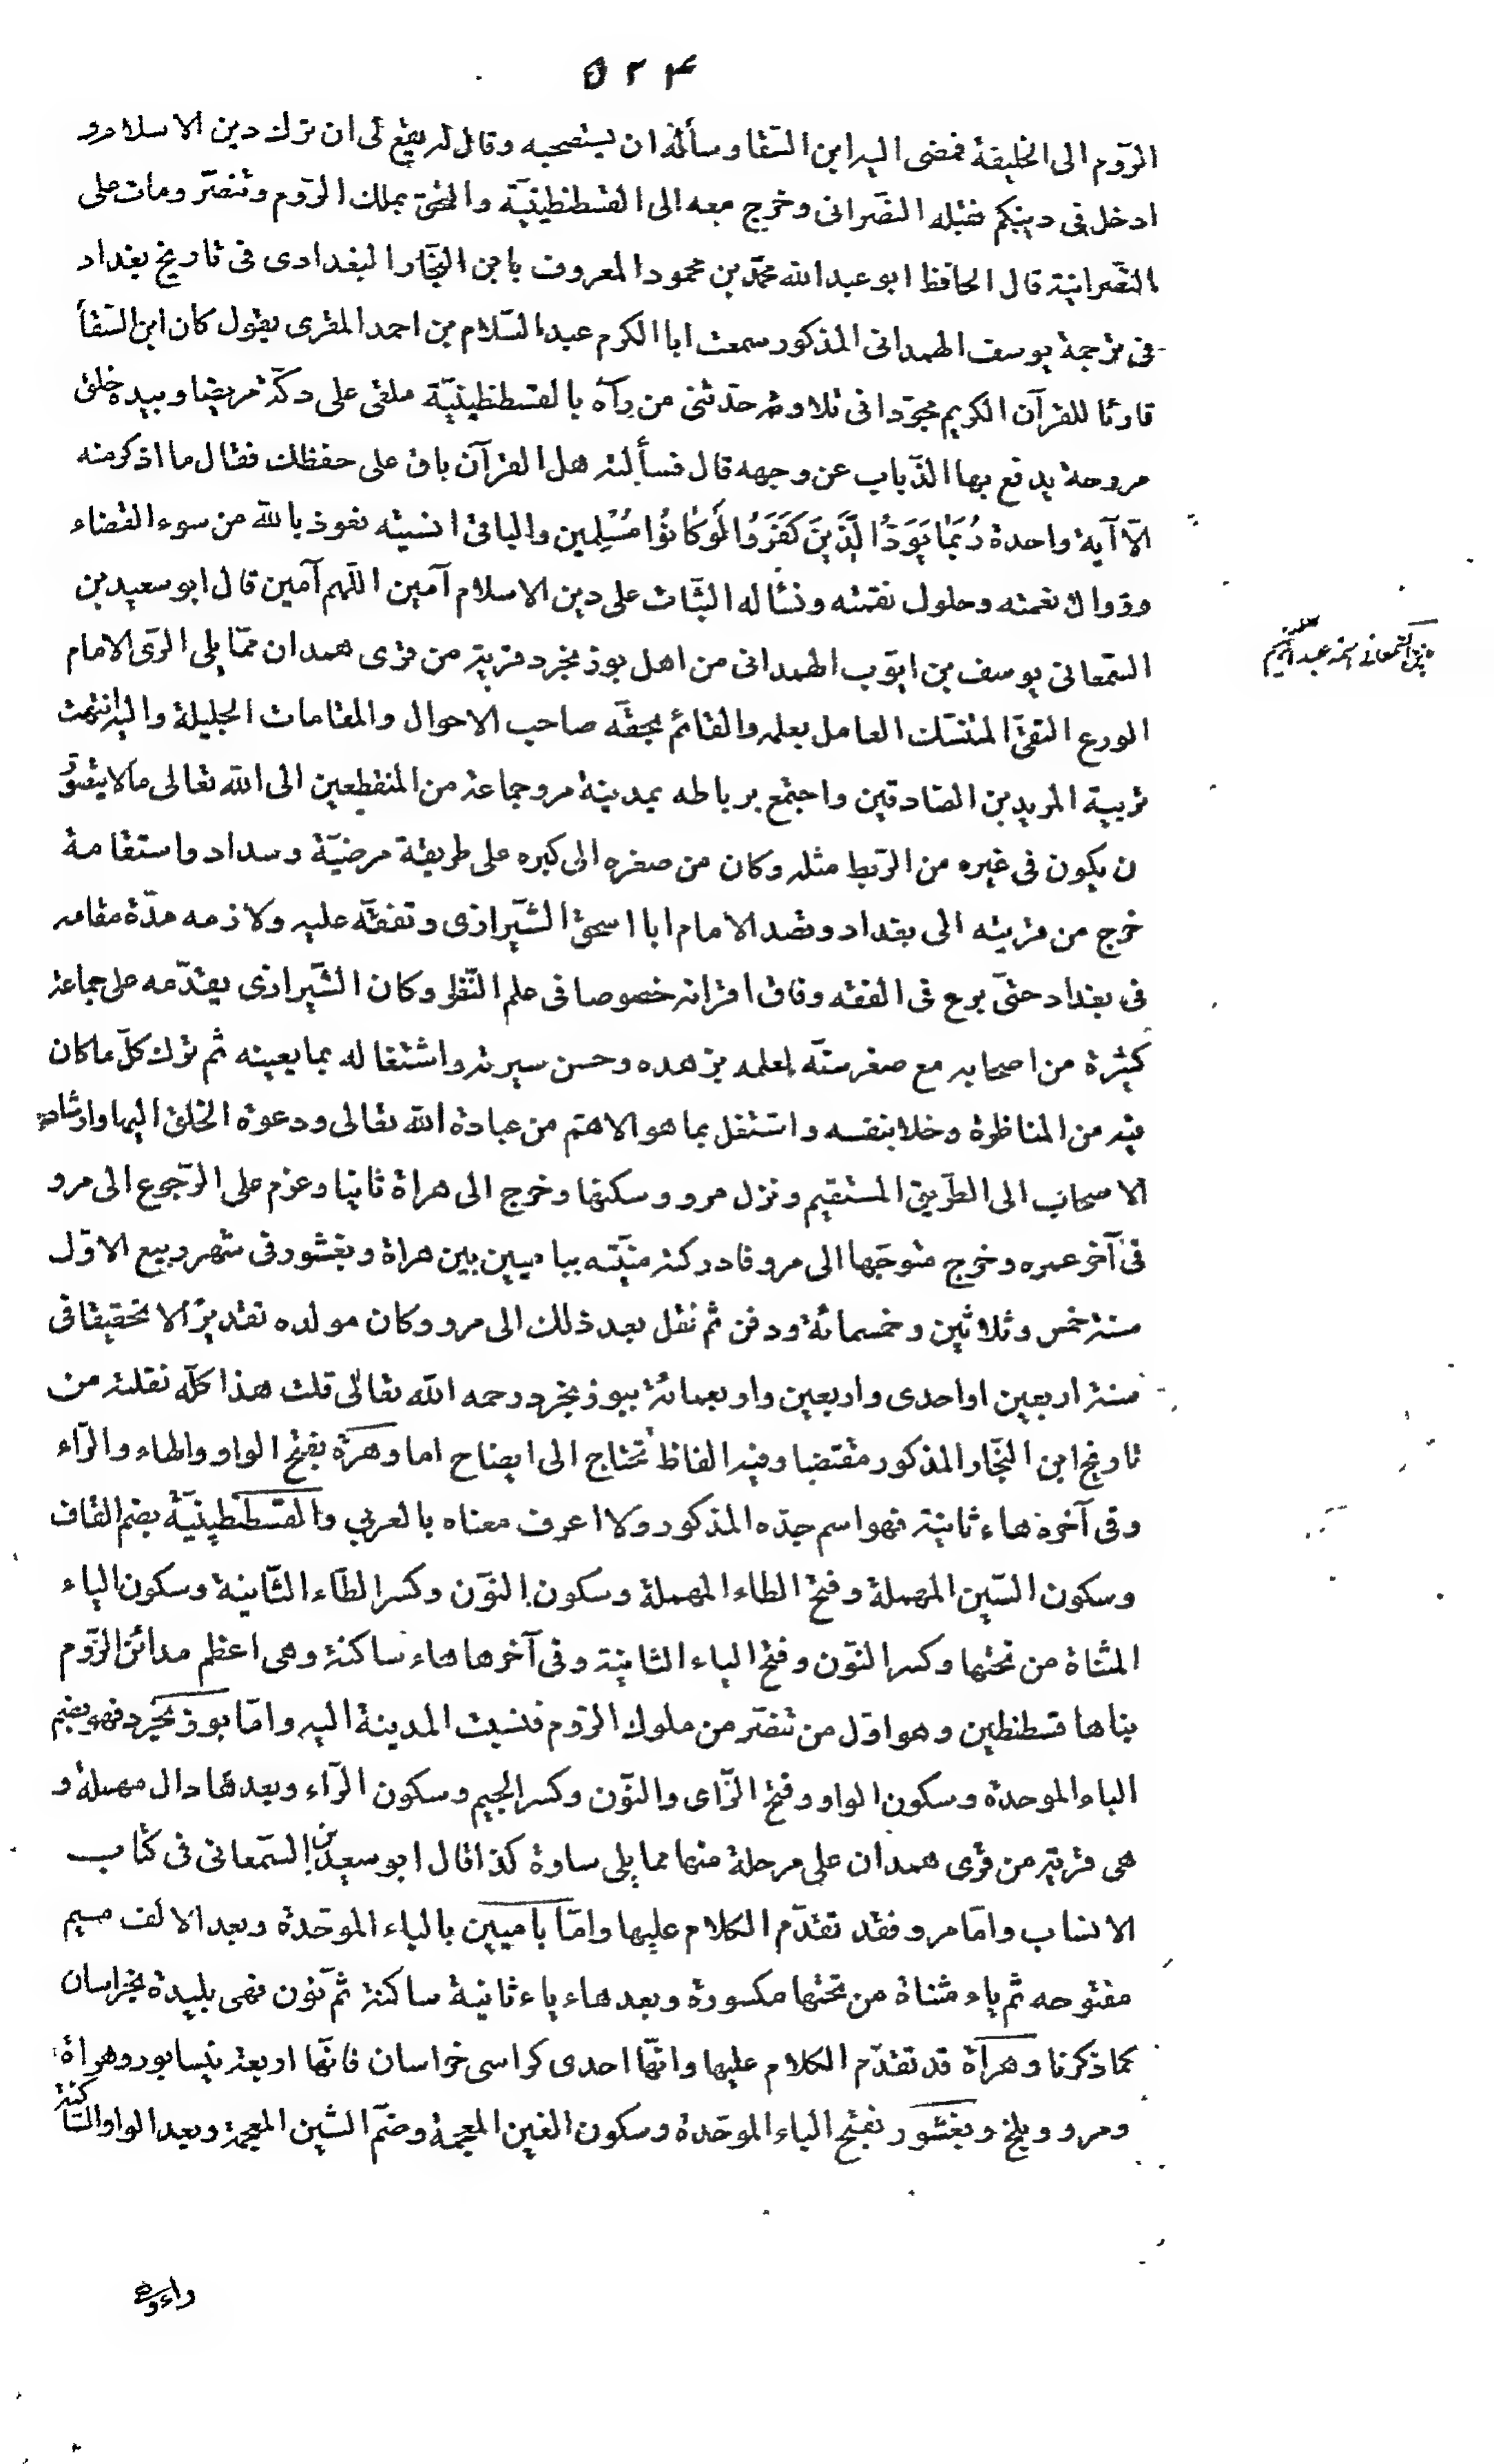 ٥٢٤
الرّوم الى الخليفة فمضى اليه ابن السّقا وسأله ان يستصحبه وقال له يقع لى ان ترك دين الاسلام و
ادخل فى دينكم فقبله النصرانى وخرج معه الى القسطنطينيّة والتحق بملك الرّوم وتنصّر ومات على
النصّرانية قال الحافظ ابو عبد الله محمّد بن محمود المعروف بابن النجّار البغدادى فى تاريخ بغداد
فى ترجمة يوسف الهمدانى المذكور سمعت ابا الكرم عبد السّلام بن احمد المقرى يقول كان ابن السّقأ
قارئا للقرآن الكريم مجوّدا فى تلاوته حدّثنى من رآه بالقسطنطينيّة ملقى على دكّة مريضا وبيده خلق
مروحة يدفع بها الذّباب عن وجهه قال فسألته هل القرآن باق على حفظك فقال ما اذكر منه
الّا آية واحدة رُبَمٰا يَوَدُّ الَّذِينَ كَفَرُوا لَوْ كٰانُوا مُسْلِمين والباقى انسيته نعوذ بالله من سوء القضاء
وزوال نعمته وحلول نقمته ونسأله الثّبات على دين الاسلام آمين اللّهم آمين قال ابو سعيد بن
السّمعانى يوسف بن ايّوب الهمدانى من اهل بوزنجرد قرية من قرى همدان ممّا يلى الرّى الامام
الورع التقىّ المتنسّك العامل بعلمه والقائم بحقّه صاحب الاحوال والمقامات الجليلة واليه انتهت
تربية المريدين الصّادقين واجتمع برباطه بمدينة مرو جماعة من المنقطعين الى الله تعالى مالا يتصوّر
ن يكون فى غيره من الرّبط مثله وكان من صغره الى كبره على طريقة مرضيّة وسداد واستقامة
خرج من قريته الى بغداد وقصد الامام ابا اسحق الشّيرازى وتفقّه عليه ولازمه مدّة مقامه
فى بغداد حتّى برع فى الفقه وفاق اقرانه خصوصا فى علم النّظر وكان الشّيرازى يقدّمه على جماعة
كثيرة من اصحابه مع صغر سنّه لعلمه بزهده وحسن سيرته واشتغاله بما يعينه ثم ترك كلّ ما كان
فيه من المناظرة وخلا بنفسه واشتغل بما هو الاهمّ من عبادة الله تعالى ودعوة الخلق اليها وارشاد
الاصحاب الى الطّريق المستقيم ونزل مرو وسكنها وخرج الى هراة ثانيا وعزم على الرّجوع الى مرو
فى آخر عمره وخرج متوجّها الى مرو فادركته منيّته بباميين بين هراة وبغشور فى شهر ربيع الاوّل
سنة خمس وثلاثين وخمسمائة ودفن ثم نقل بعد ذلك الى مرو وكان مولده تقديرًا لا تحقيقا فى
سنة اربعين او احدى واربعين واربعمائة ببوزنجرد رحمه الله تعالٰى قلت هذا كلّه نقلته من
تاريخ ابن النجّار المذكور مقتضبا وفيه الفاظ تحتاج الى ايضاح اما وهرة بفتح الواو والهاء والرّاء
وفى آخره هاء ثانية فهو اسم جدّه المذكور ولا اعرف معناه بالعربى والقسطنطينيّة بضم القاف
وسكون السّين المهملة وفتح الطاء المهملة وسكون النّون وكسر الطّاء الثّانية وسكون الياء
المثنّاة من تحتها وكسر النّون وفتح الياء الثانية وفى آخرها هاء ساكنة وهى اعظم مدائن الرّوم
بناها قسطنطين وهو اوّل من تنصّر من ملوك الرّوم فنسبت المدينة اليه وامّا بوزنجرد فهو بضم
الباء الموحدة وسكون الواو وفتح الزّاى والنّون وكسر الجيم وسكون الرّاء وبعدها دال مهملة و
هى قرية من قرى همدان على مرحلة منها مما يلى ساوة كذا قال ابو سعيد بن السّمعانى فى كتاب
الانساب وامّا مرو فقد تقدّم الكلام عليها وامّا باميين بالباء الموحّدة وبعد الالف ميم
مفتوحه ثم ياء مثناة من تحتها مكسورة وبعدهاء ياء ثانية ساكنة ثم نّون فهى بليدة بخراسان
كما ذكرنا وهراة قد تقدّم الكلام عليها وانّها احدى كراسى خراسان فانّها اربعة نيسابور وهراة
ومرو وبلخ وبغشور بفتح الباء الموحّدة وسكون الغين المعجمة وضمّ الشين المعجمة وبعد الواو السّاكنة
السّمعانى اسمه عبد الكريم
راء وه